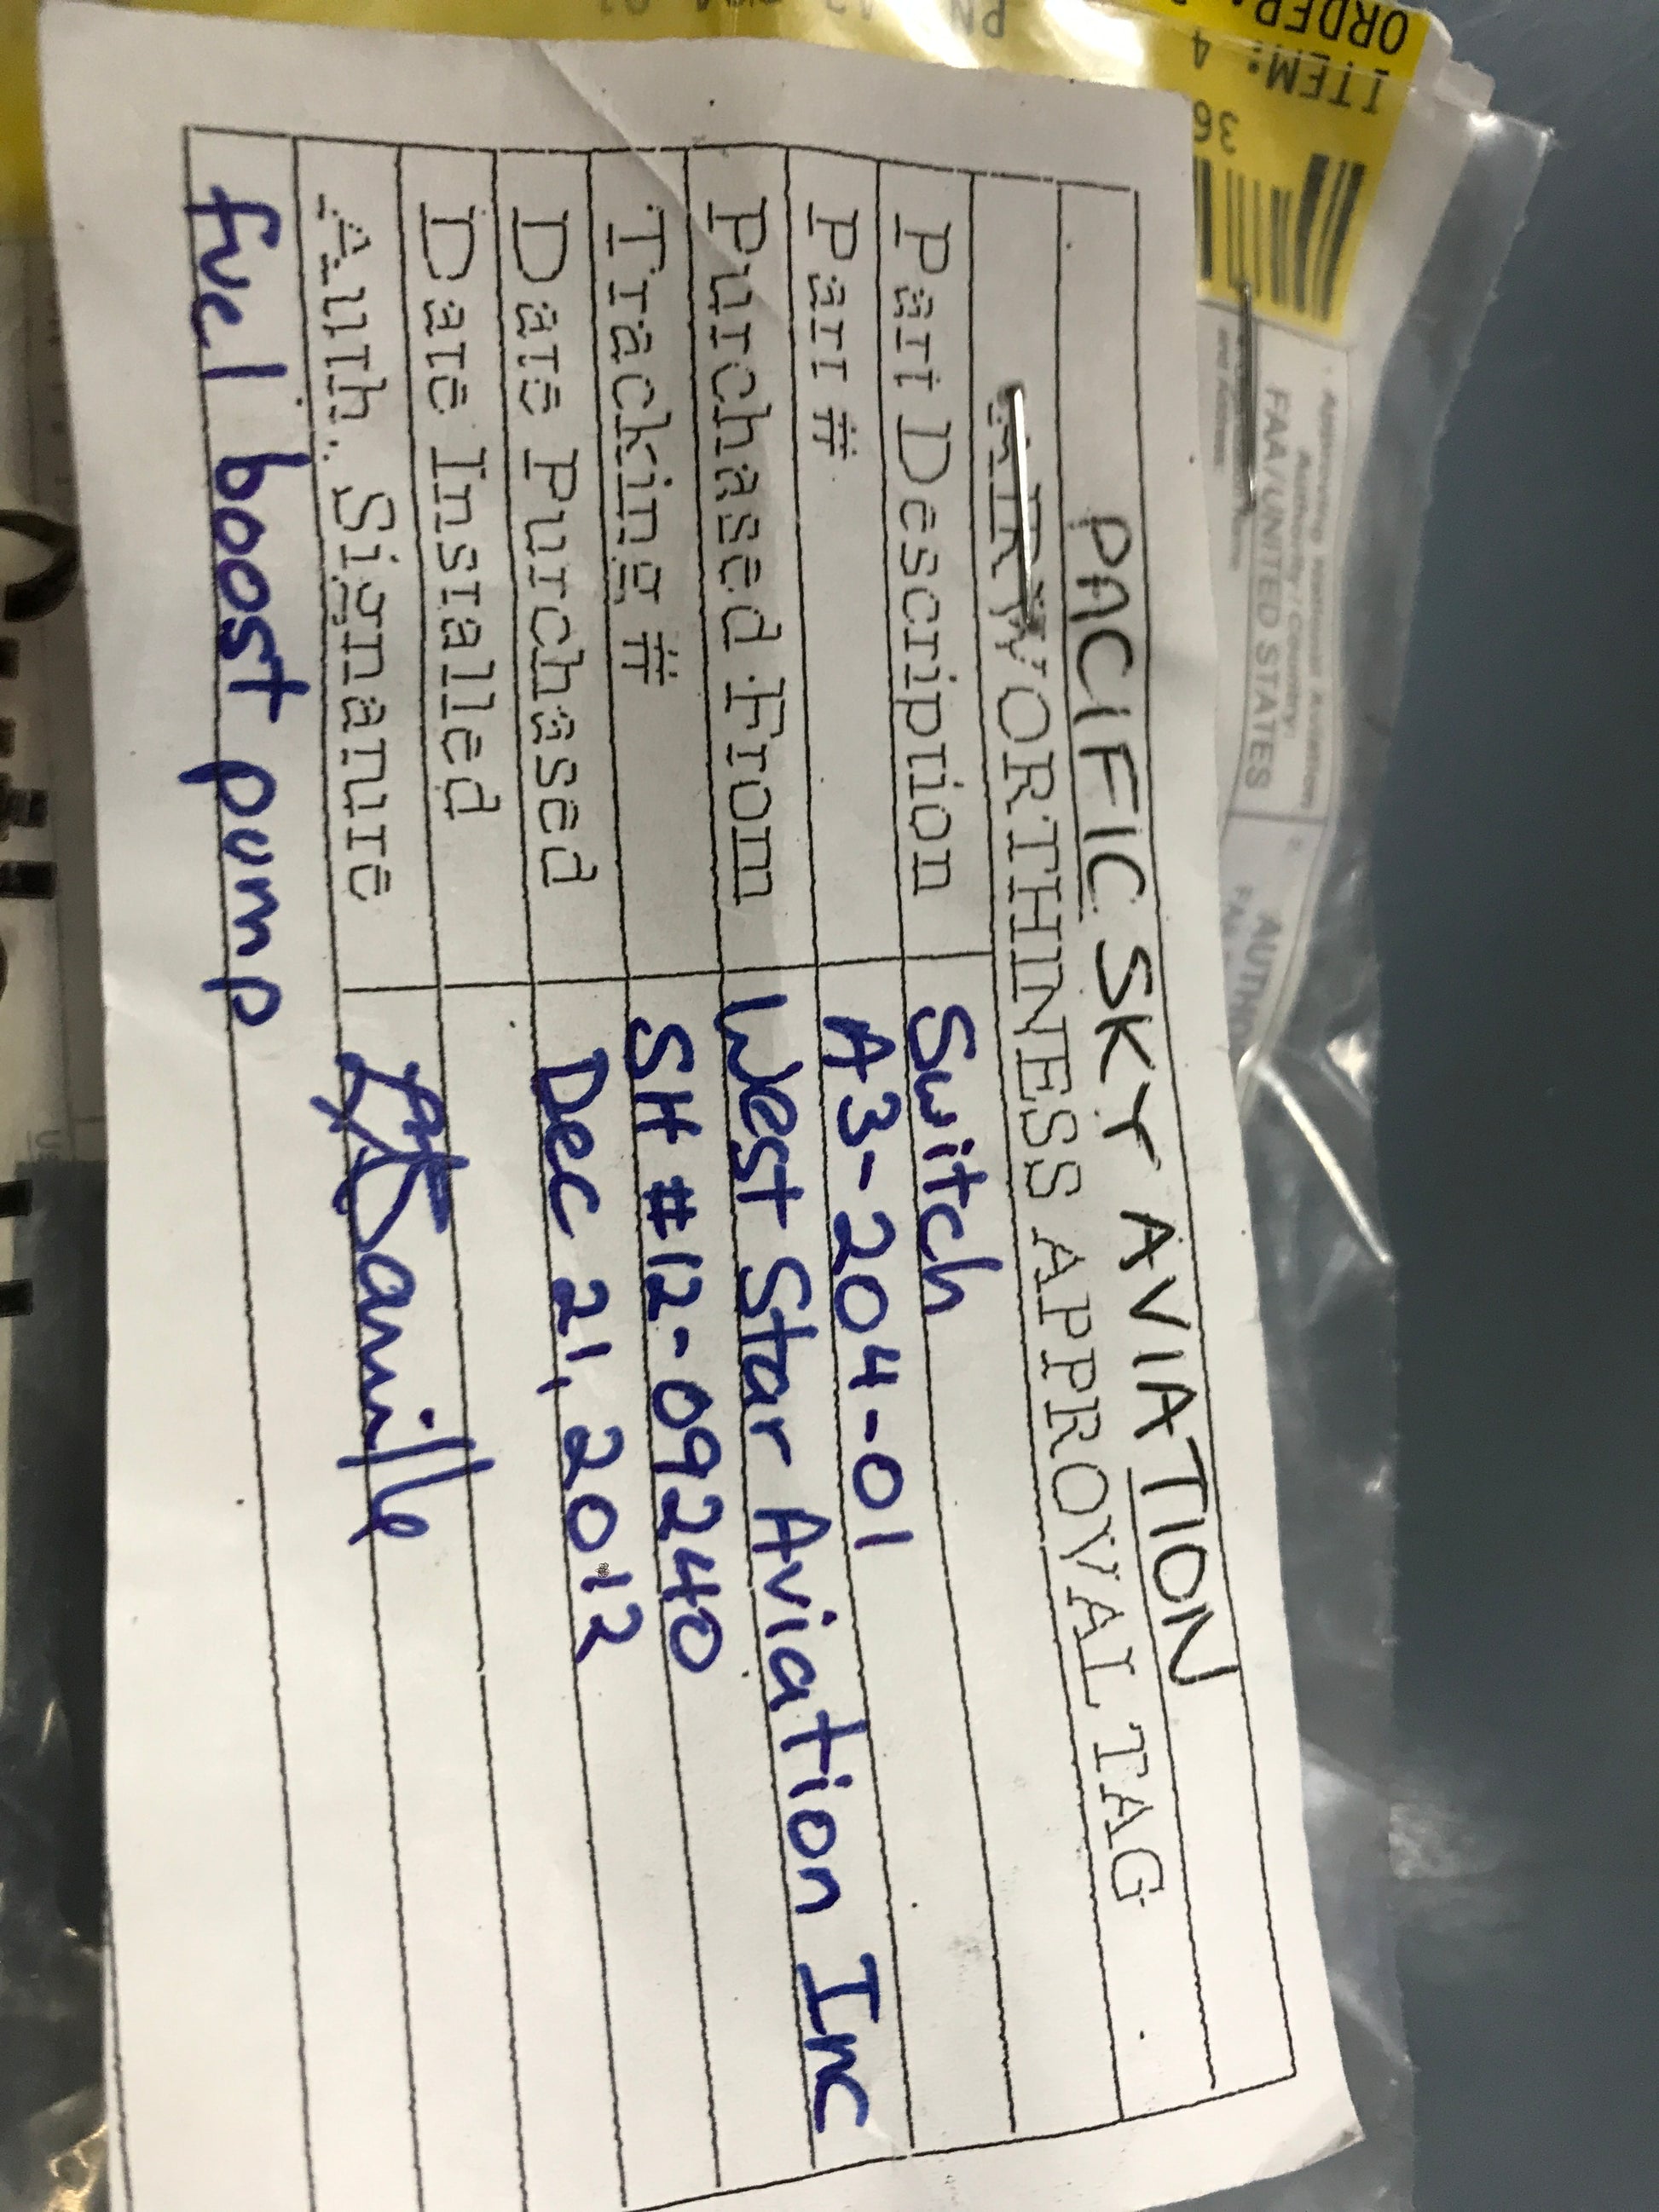 PACIFIC SKY AVIATION
AIRWORTHINESS APPROVAL TAG
Part Description Switch
Part # A3-204-01
Purchased From West Star Aviation Inc
Tracking # SH #12-09240
Date Purchased Dec 21, 2012
Date Installed
Auth. Signature
fuel boost pump
ORDER
ITEM: 4
36
PN
Approving National Aviation
Authority / Country:
FAA/UNITED STATES